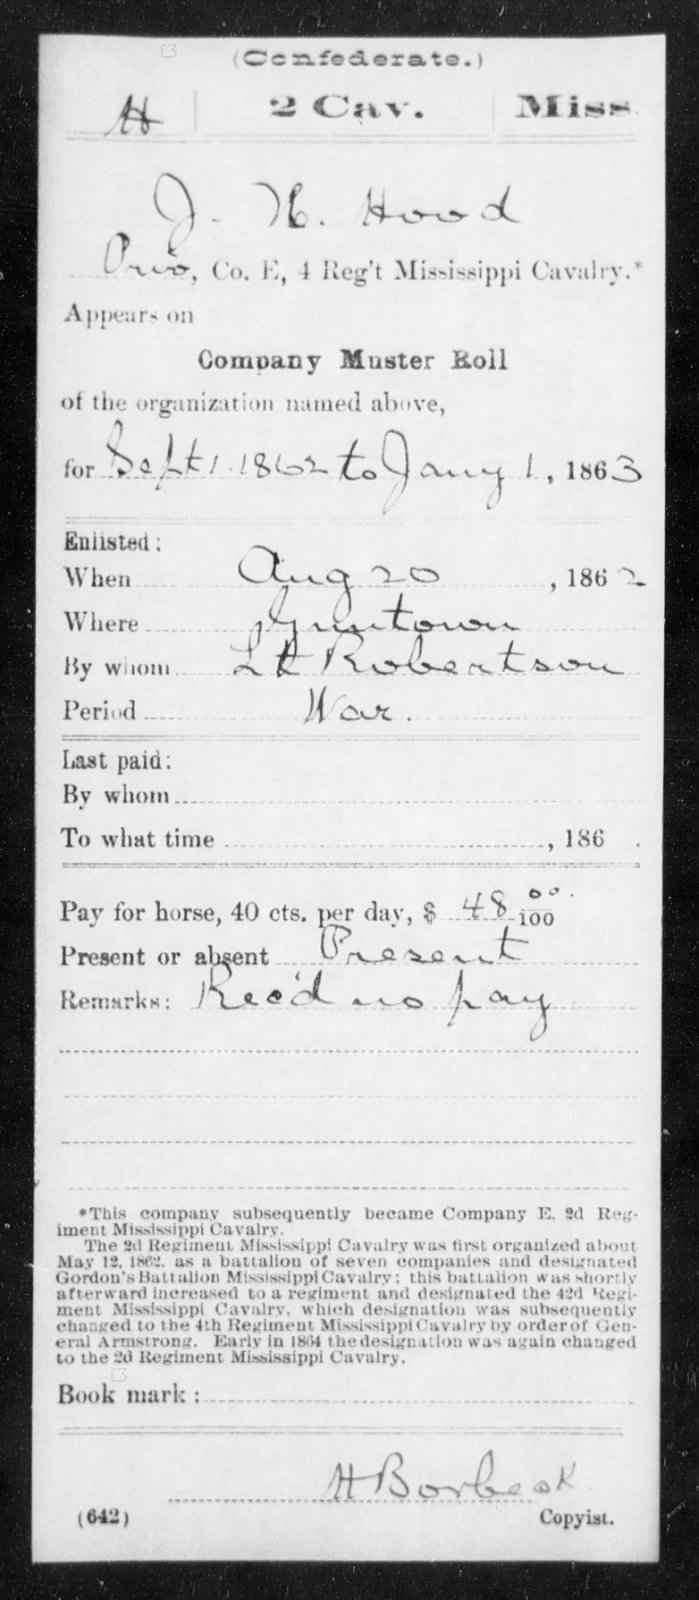 (Confederate.)
H | 2 Cav. | Miss.
J. N. Hood
Priv, Co. E, 4 Reg't Mississippi Cavalry.*
Appears on
Company Muster Roll
of the organization named above,
for Sept 1 1862 to Jany 1, 1863
Enlisted:
When Aug 20, 1862
Where Guntown
By whom Lt Robertson
Period War.
Last paid:
By whom
To what time , 186 .
Pay for horse, 40 cts. per day, $ 48 00/100
Present or absent Present
Remarks: Rec'd no pay
*This company subsequently became Company E, 2d Reg-
iment Mississippi Cavalry.
The 2d Regiment Mississippi Cavalry was first organized about
May 12, 1862, as a battalion of seven companies and designated
Gordon's Battalion Mississippi Cavalry; this battalion was shortly
afterward increased to a regiment and designated the 42d Regi-
ment Mississippi Cavalry, which designation was subsequently
changed to the 4th Regiment Mississippi Cavalry by order of Gen-
eral Armstrong. Early in 1864 the designation was again changed
to the 2d Regiment Mississippi Cavalry.
Book mark:
H
(642) Copyist.